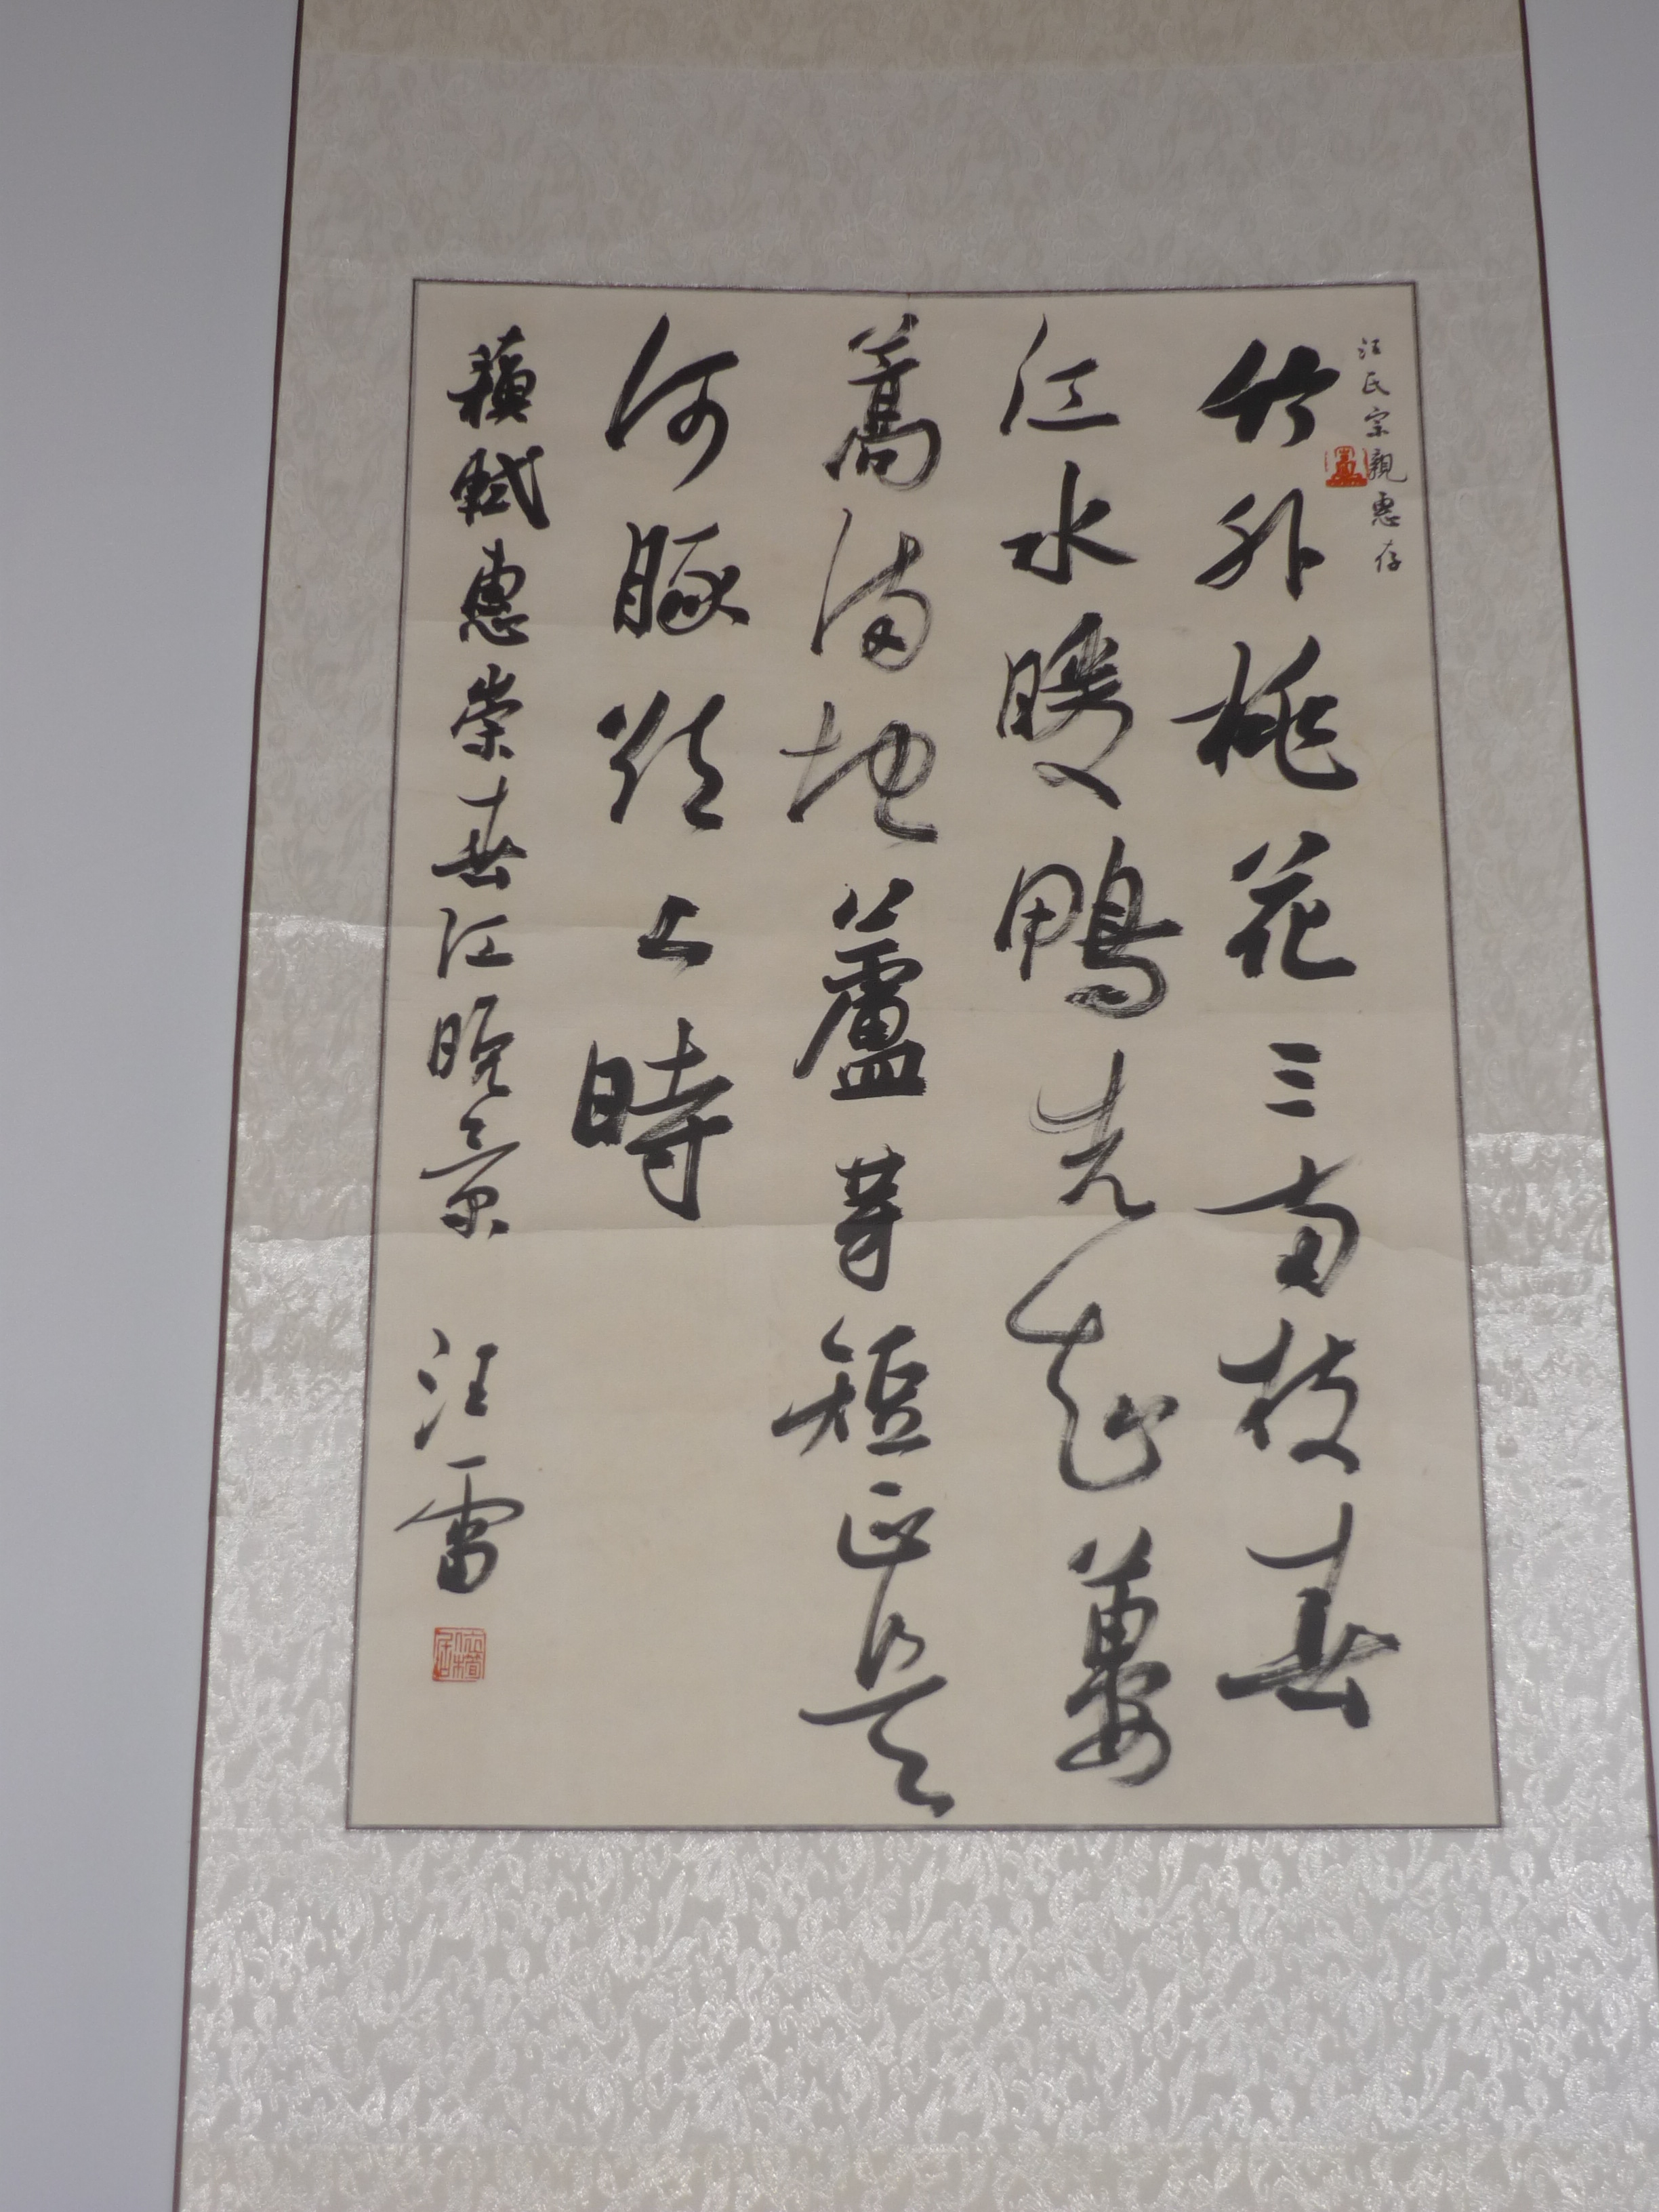 汪氏宗親惠存
竹外桃花三两枝春
江水暖鴨先知蔞
蒿满地蘆芽短正是
河豚欲上時
蘇軾惠崇春江晚景 汪雷